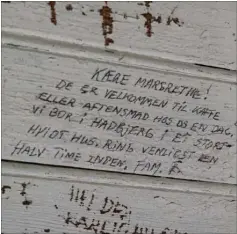 KÆRE MARGRETHE!
DE ER VELKOMMEN TIL KAFFE
ELLER AFTENSMAD HOS OS EN DAG,
VI BOR I HADBJERG I ET STORT
HVIDT HUS. RING VENLIGST EN
HALV TIME INDEN. FAM.
VIL DE